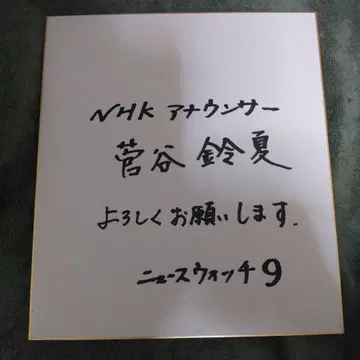 NHK アナウンサー
菅谷 鈴夏
よろしくお願いします.
ニュースウォッチ9